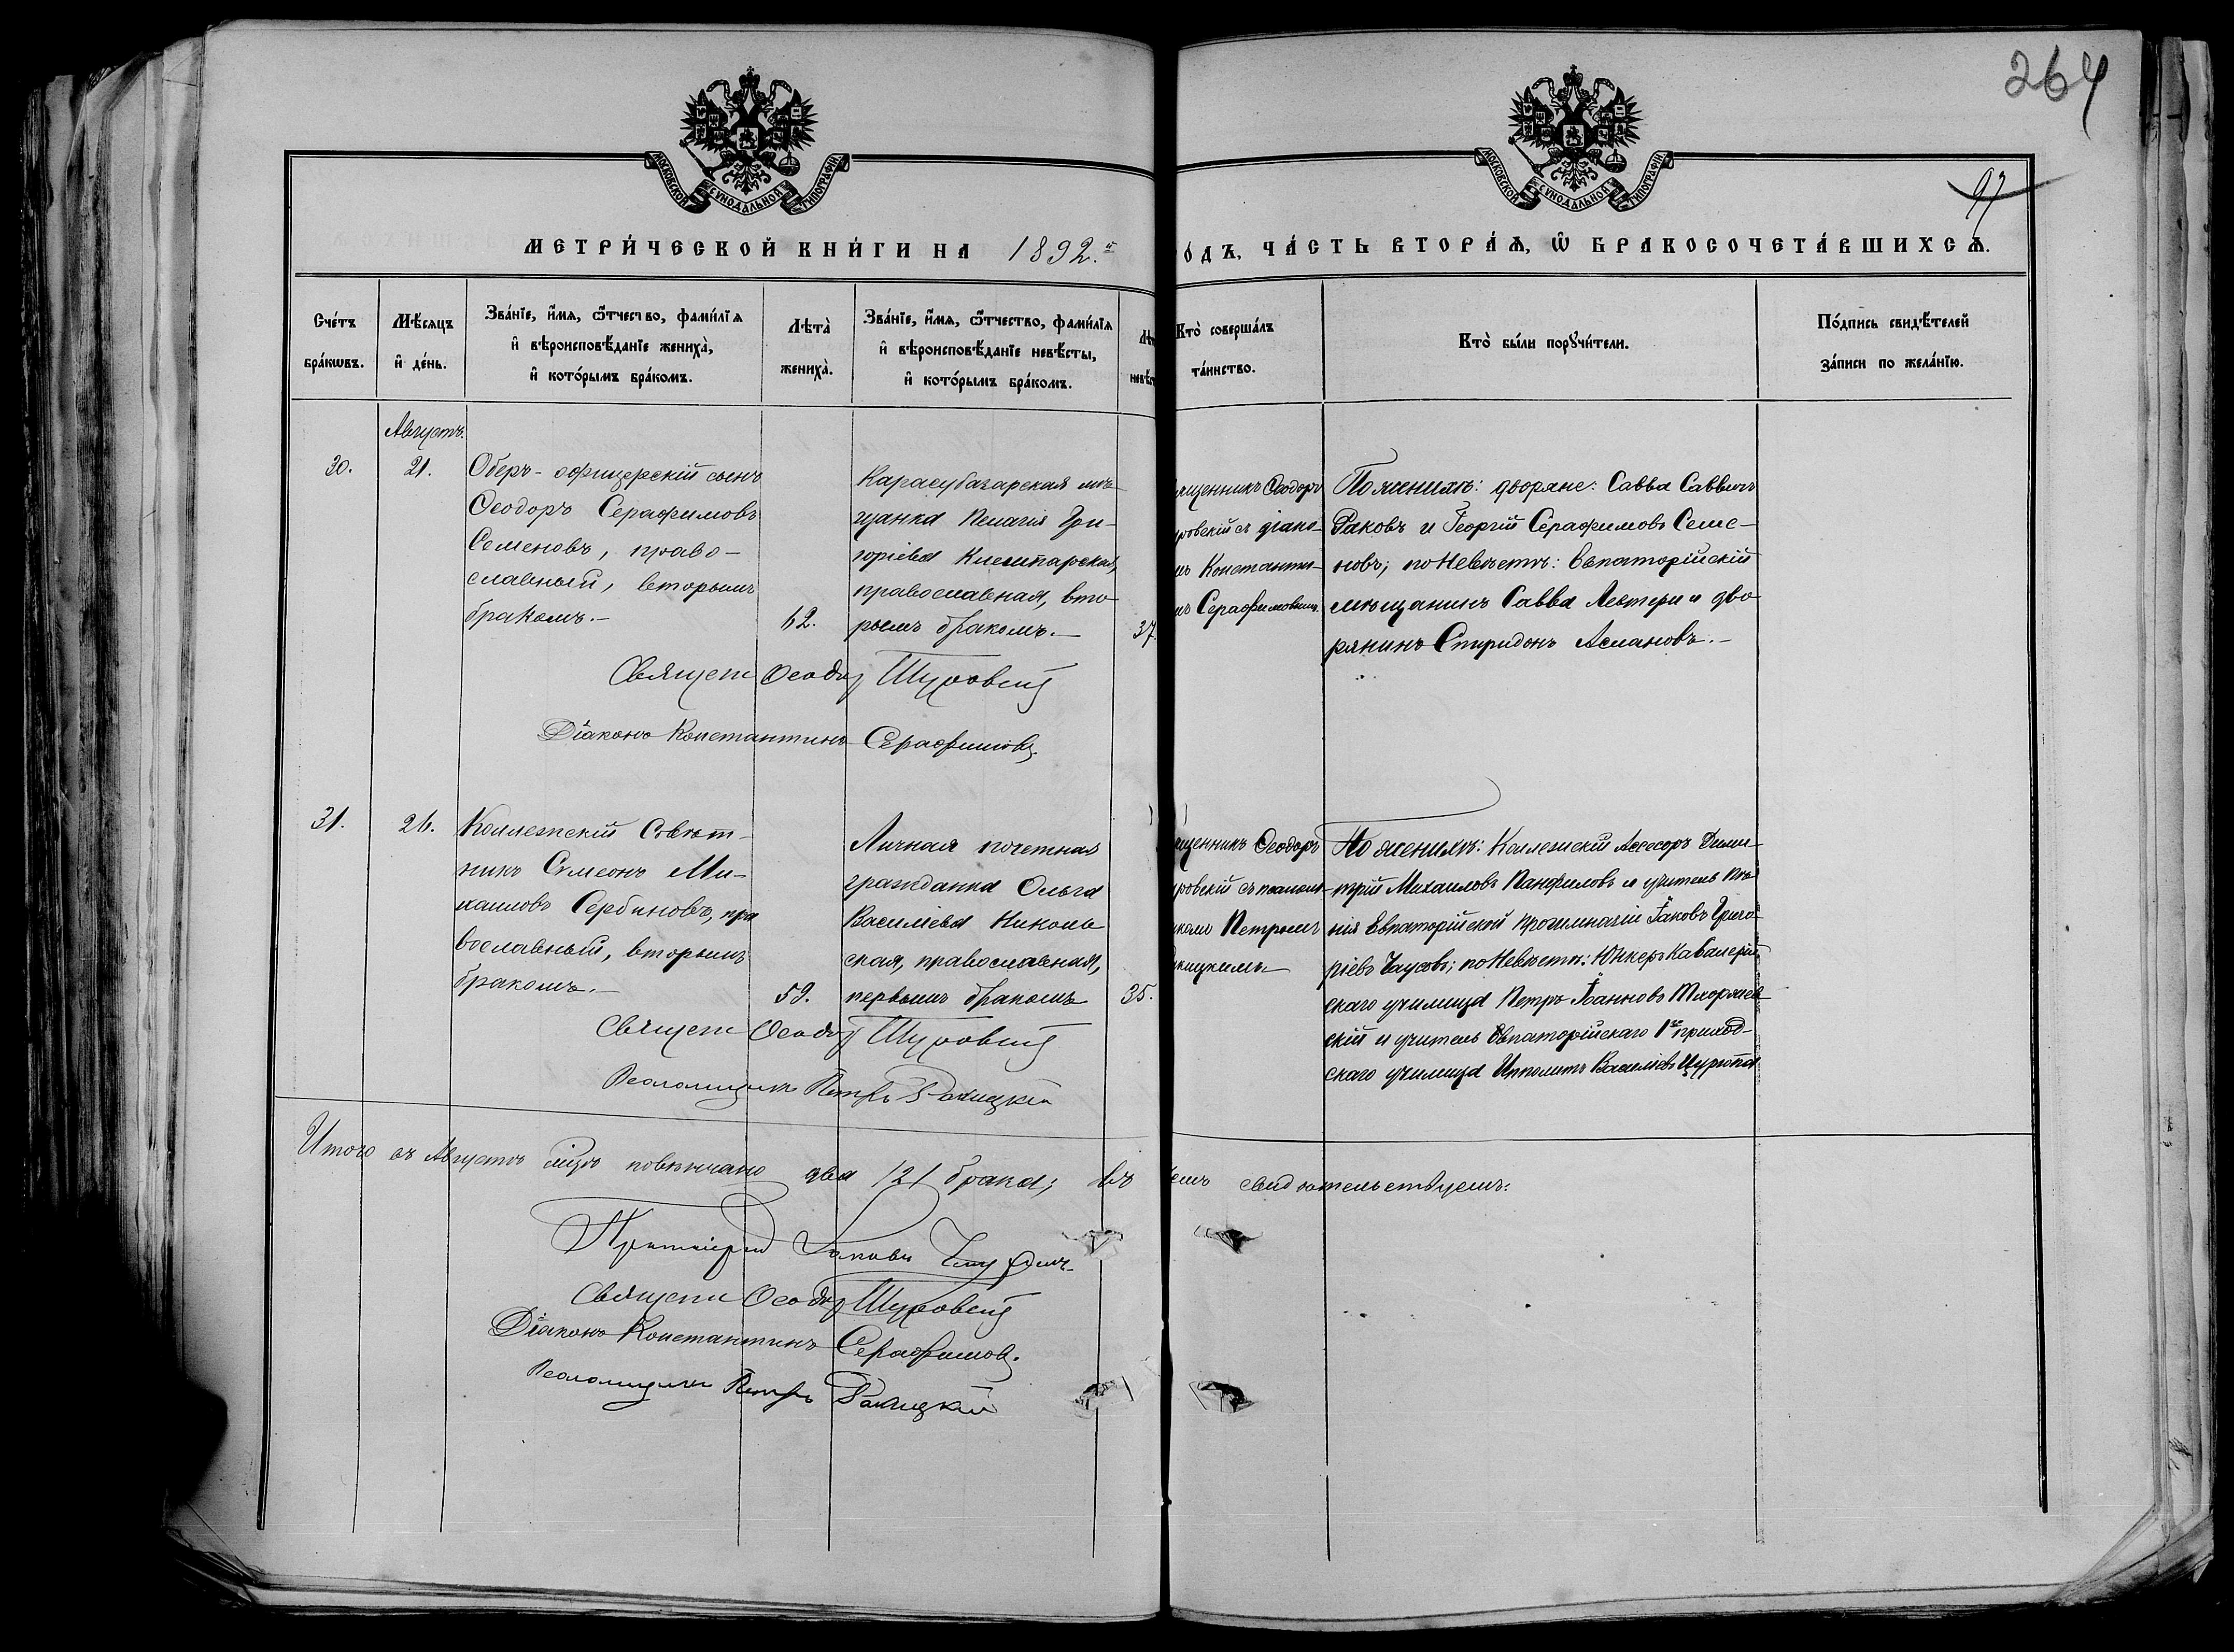 264
97
МОСКОВСКОЙ СѴНОДАЛЬНОЙ ТИПОГРАФІИ
МОСКОВСКОЙ СѴНОДАЛЬНОЙ ТИПОГРАФІИ
МЕТРИ́ЧЕСКОЙ КНИ́ГИ НА 1892.й
ОДЪ, ЧА́СТЬ ВТОРА́Ѧ, Ѡ҆ БРАКОСОЧЕТА́ВШИХСѦ.
Сче́тъ
бра́кѡвъ.
Мѣ́сѧцъ
и҆ де́нь.
Зва́нїе, и҆́мѧ, ѻ҆́тчество, фами́лїѧ
и҆ вѣроисповѣ́данїе жениха̀,
и҆ кото́рымъ бра́комъ.
Лѣта̀
жениха̀.
Зва́нїе, и҆́мѧ, ѻ҆́тчество, фами́лїѧ
и҆ вѣроисповѣ́данїе невѣ́сты,
и҆ кото́рымъ бра́комъ.
Лѣт
невѣс
Кто̀ соверша́лъ
та́инство.
Кто̀ бы́ли порꙋчи́тели.
По́дпись свидѣ́телей
за́писи по жела́нїю.
Августъ.
30.
21.
Оберъ-офицерскій сынъ
Ѳеодоръ Серафимовъ
Семеновъ, право-
славный, вторымъ
бракомъ.-
62.
Карасубазарская мѣ-
щанка Пелагія Гри-
горіева
православная, вто-
рымъ бракомъ.-
37
ященникъ Ѳеодоръ
ровскій съ діако-
мъ Константи-
мъ Серафимовымъ.
По женихѣ: дворяне: Савва Саввичъ
Раковъ и Георгій Серафимовъ Семе-
новъ; по Невѣстѣ: Евпаторійскій
мѣщанинъ Савва Левтери и дво-
рянинъ Спиридонъ Аслановъ.-
Священ Ѳеодор Щуровскій
Діаконъ Константинъ Серафимовъ.
31.
26.
Коллежскій Совѣт-
никъ Симеонъ Ми-
хаиловъ Сербиновъ, пра
вославный, вторымъ
бракомъ.-
59.
Личная почетная
гражданка Ольга
Василіева Николь
ская, православная,
первымъ бракомъ
35.
ященникъ Ѳеодоръ
ровскій съ псалом-
комъ Петромъ
кицкимъ
По женихѣ: Коллежскій Ассесоръ Дими-
трій Михаиловъ Панфиловъ и учитель Пѣ-
нія Евпаторійской прогимназіи Іаковъ Григо-
ріевъ Чаусовъ; по Невѣстѣ: Юнкеръ Кавалерій-
скаго училища Петръ Іоанновъ
скій и учитель Евпаторійскаго 1го приход-
скаго училища Ипполитъ Василіевъ Цурюпа
Священ Ѳеодор Щуровскій
Псаломщикъ Петръ Ракицкій
Итого въ Августѣ мѣсяцѣ повѣнчано два /2/ брака; въ
чемъ свидѣтельствуемъ:
Протоіерей Іаковъ
Священ Ѳеодор Щуровскій
Діаконъ Константинъ Серафимовъ.
Псаломщикъ Петръ Ракицкій